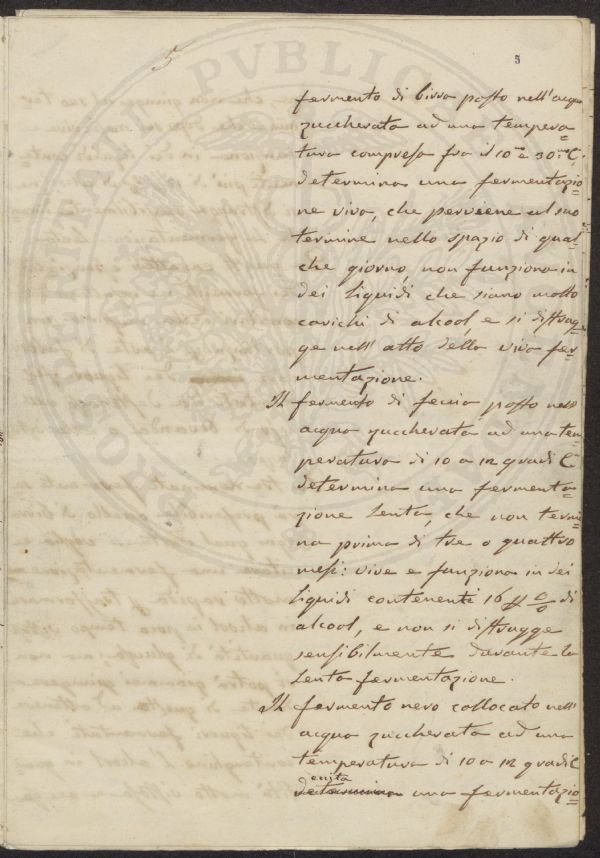 5
5
fermento di birra posto nell'acqua
zuccherata ad una tempera=
tura compresa fra il 10.mo e 30.mo C.
determina una fermentazio=
ne viva, che perviene al suo
termine nello spazio di qual=
che giorno, non funziona in
dei liquidi che siano molto
carichi di alcool, e si distrug=
ge nell'atto della viva fer=
mentazione.
Il fermento di feccia posto nell'
acqua zuccherata ad una tem=
peratura di 10 a 12 gradi C
determina una fermenta=
zione lenta, che non termi=
na prima di tre o quattro
mesi: vive e funziona in dei
liquidi contenenti 16 p % di
alcool, e non si distrugge
sensibilmente durante la
lenta fermentazione.
Il fermento nero collocato nell'
acqua zuccherata ad una
temperatura di 10 a 12 gradi C
eccita
determina una fermentazio=
PROSPERITATI PUBLICAE